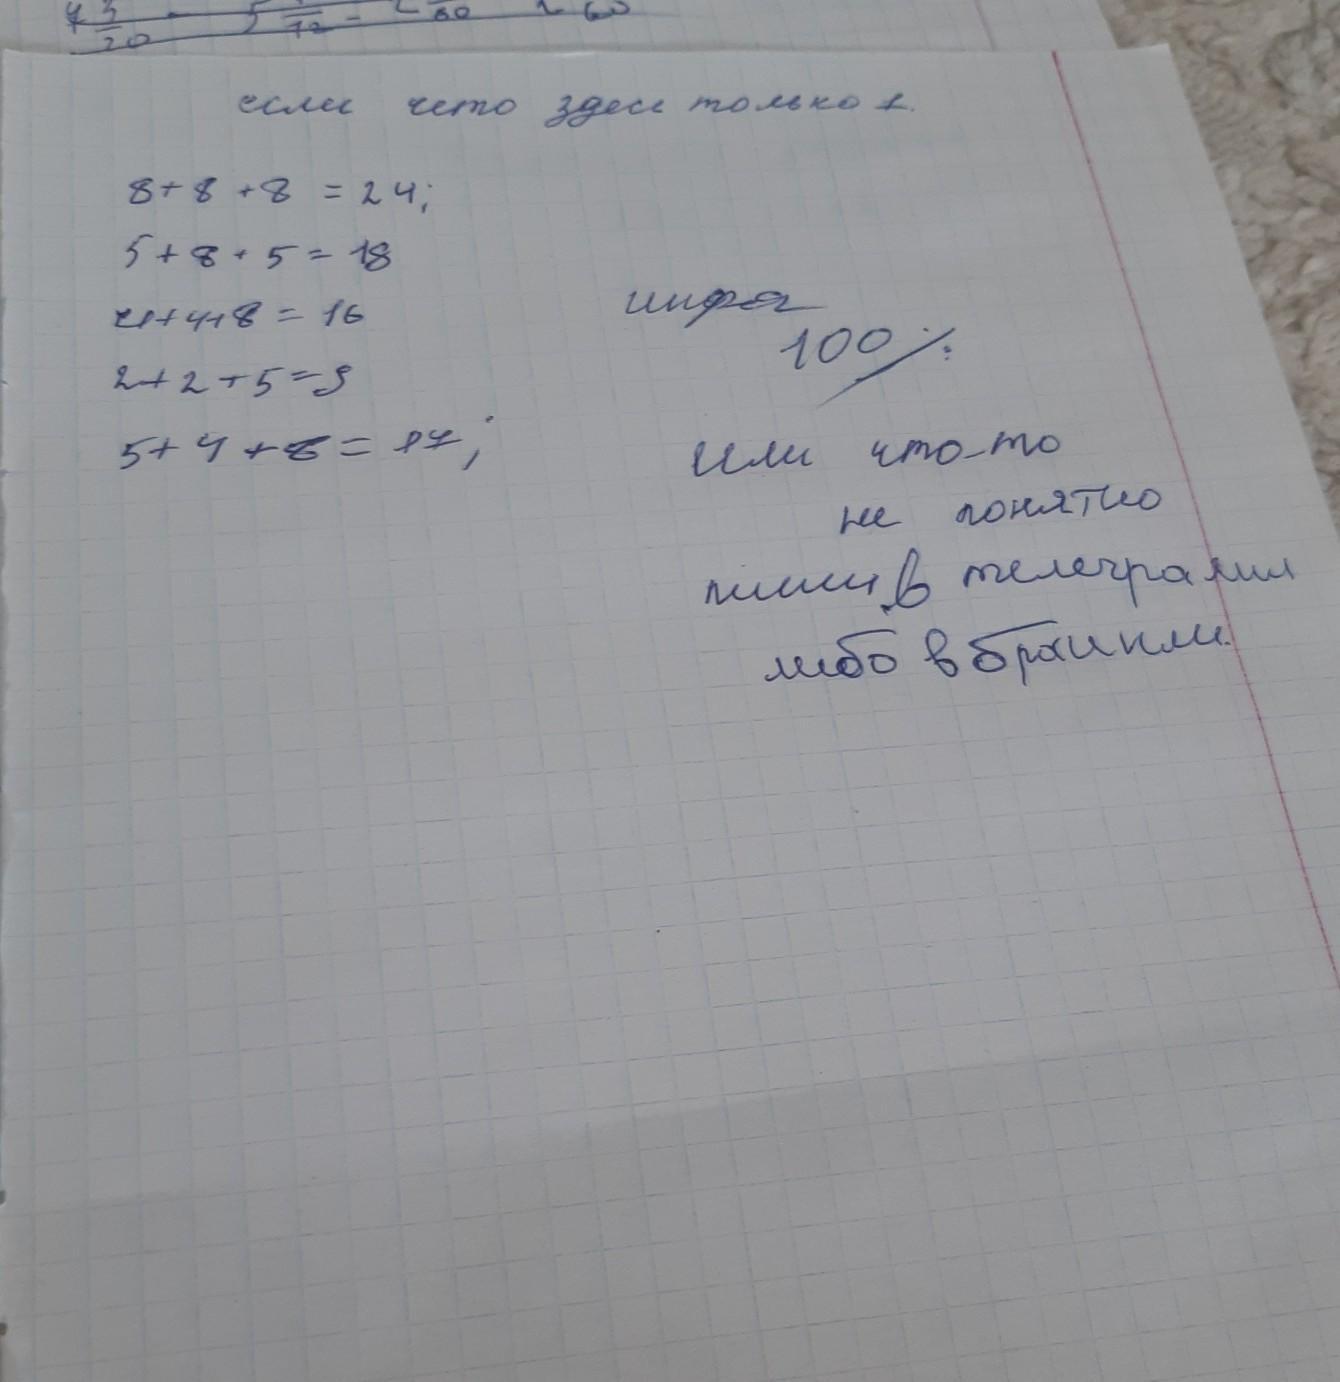 если чето здесь только 1.
8+8+8=24;
5+8+5=18
4+4+8=16
2+2+5=9
5+4+8=17;
инфа
100%
Или что-то
не понятно
пиши в телеграмм
либо в браинли.